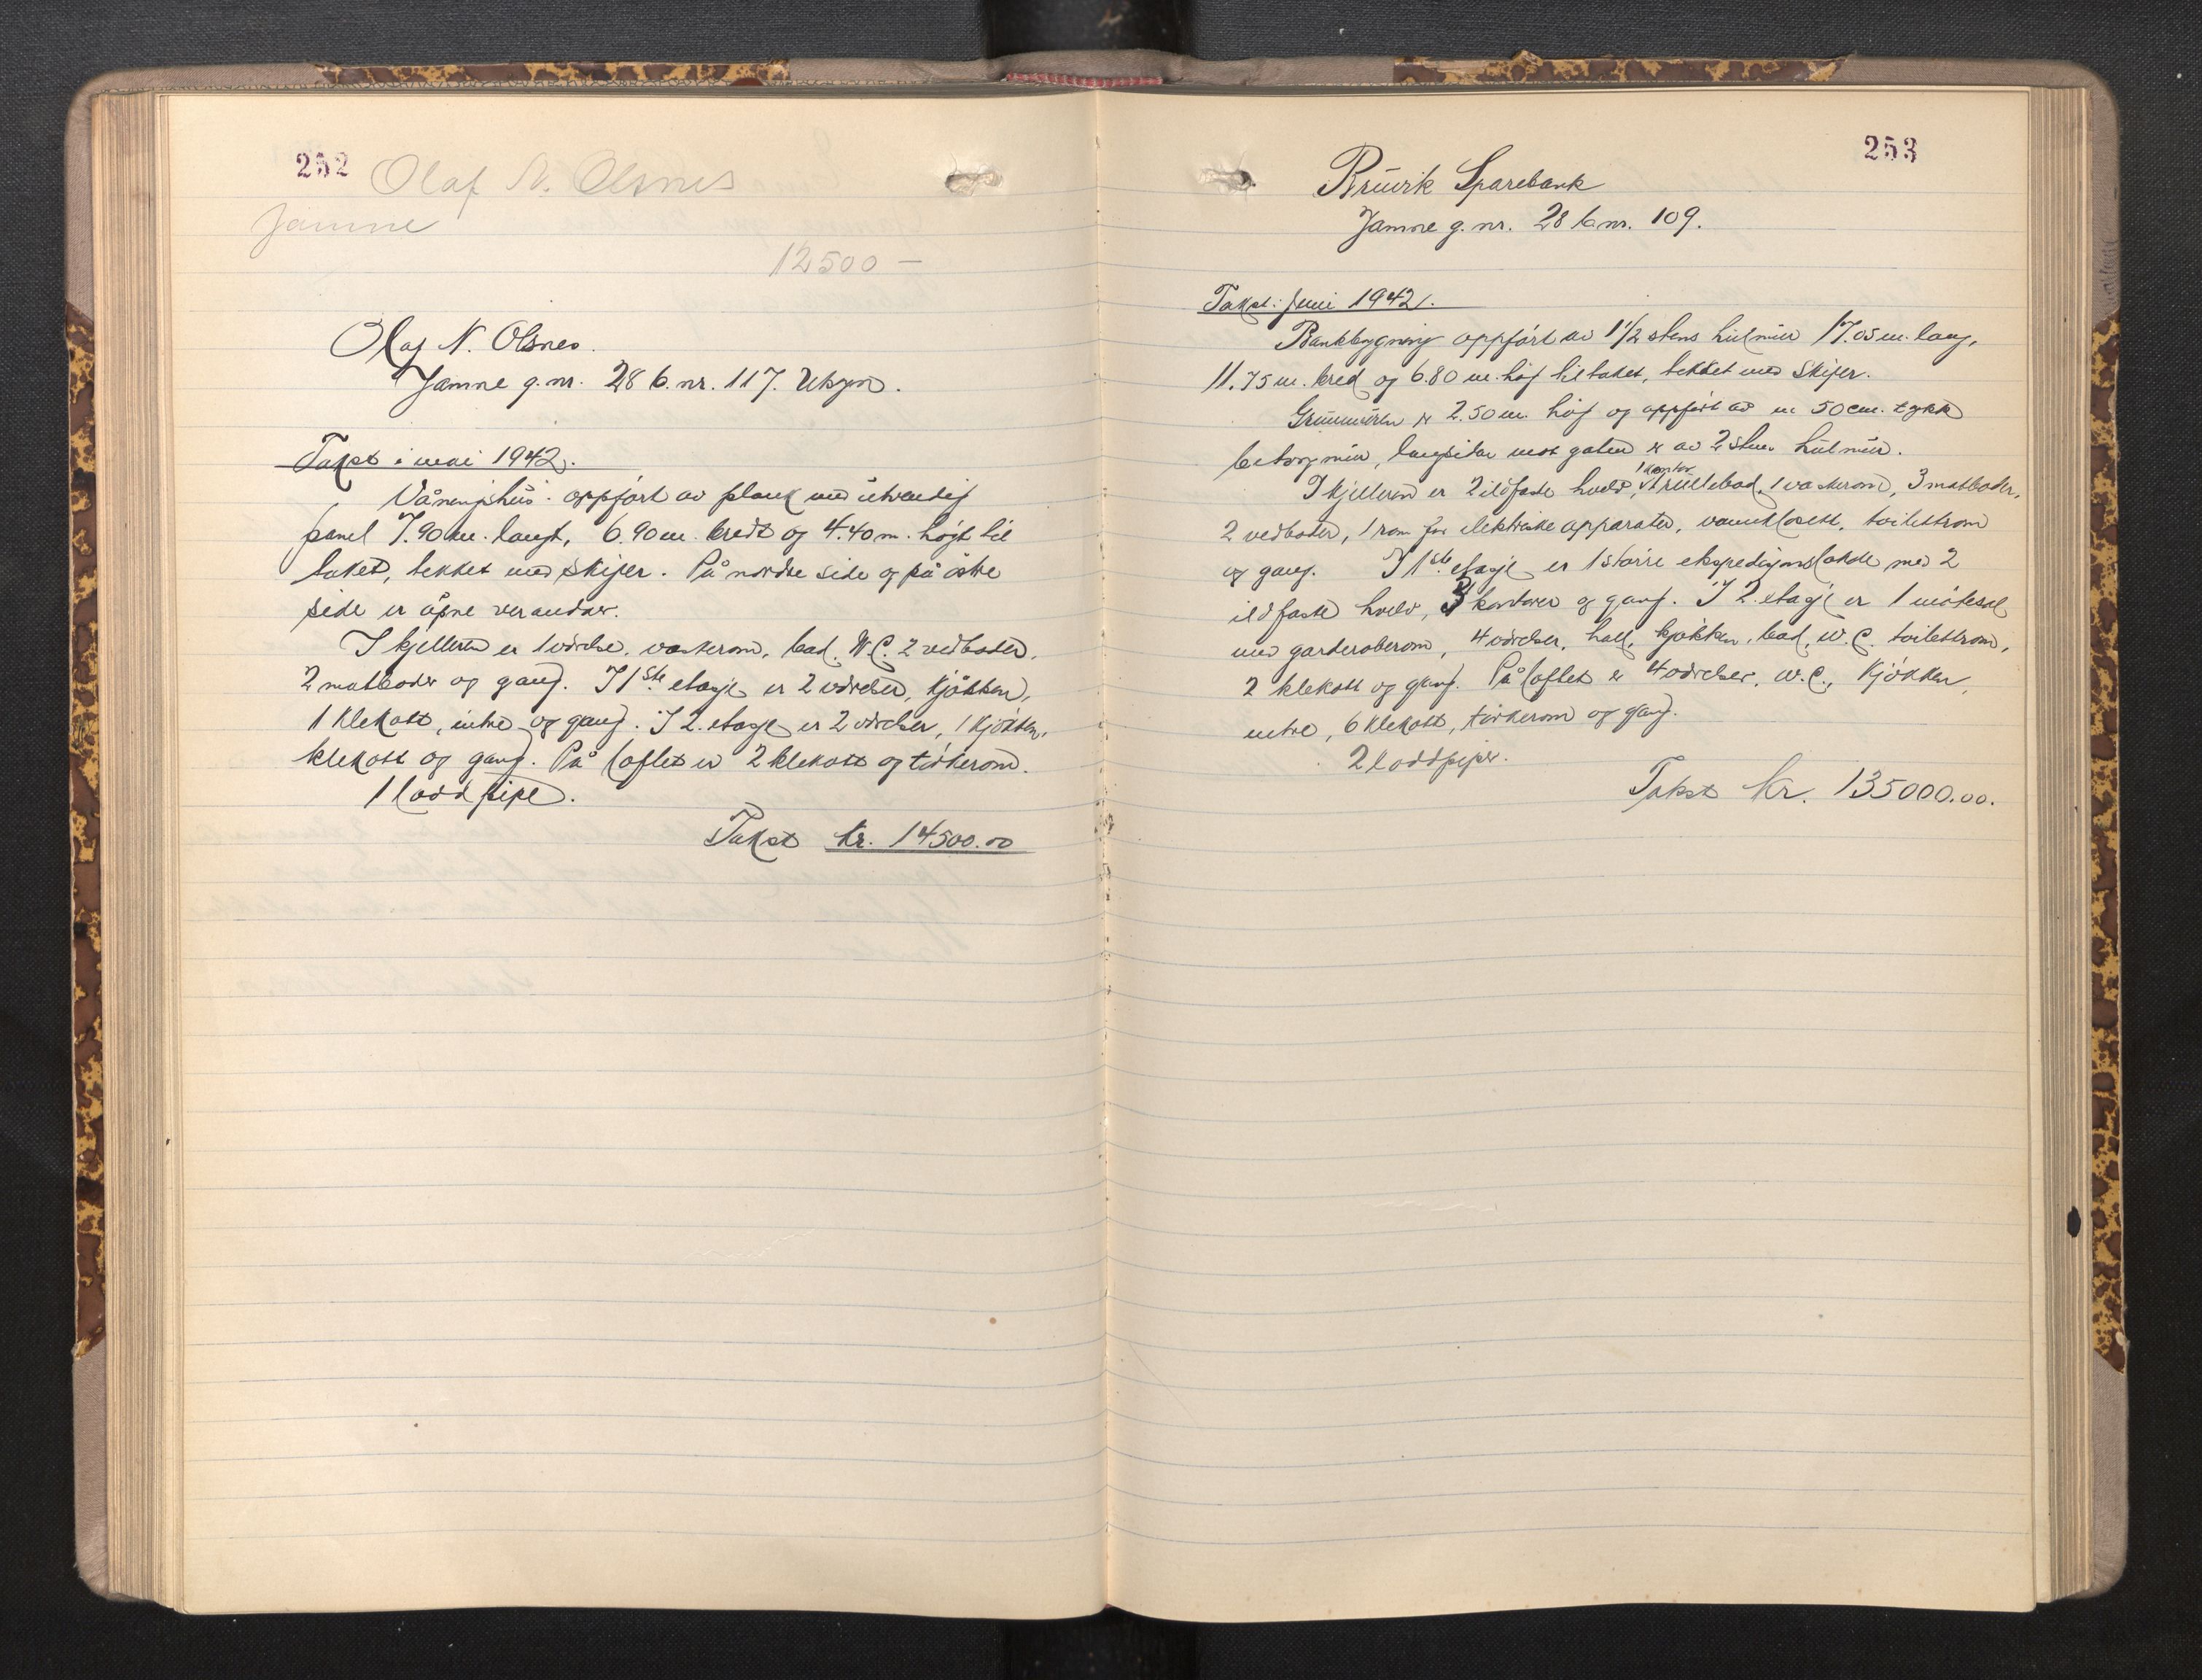 252
Olaf N. Olsnes
Jamne
12500 —
Olaf N. Olsnes.
Jamne g.nr. 28 b.nr. 117.
Takst i mai 1942.
Våningshus: oppført av plank med utvendig
panel 7.90 m. langt, 6.90 m. bredt og 4.40 m. högt til
taket, tekket med skifer. På nordre side og på östre
side er åpne verandaer.
I kjelleren er 1 værelse, vaskerom, bad, W.C. 2 vedboder,
2 matboder og gang. I 1ste etasje er 2 værelser, kjökken,
1 klekott, entre og gang. I 2. etasje er 2 værelser, 1 kjökken,
klekott og gang. På loftet er 2 klekott og törkerom.
1 loddpipe.
Takst kr. 14500.00
253
Bruvik Sparebank
Jamne g.nr. 28 b.nr. 109.
Takst: Juni 1942.
Bankbygning oppfört av 1 1/2 stens hulmur 17.05 m. lang,
11.75 m. bred og 6.80 m. höj til taket, tekket med skifer.
Grunnmuren er 2.50 m. höj og oppfört av en 50 cm. tykk
betongmur, langsiden mot gaten er av 2 stens hulmur.
I kjelleren er 2 ildfaste hvelv, 1 kontor, 1 rullebod, 1 vaskerom, 3 matboder,
2 vedboder, 1 rom for elektriske apparater, vannklosett, toilettrom
og gang. I 1ste etasje er 1 större ekspedisjonslokale med 2
ildfaste hvelv, 3 kontorer og gang. I 2. etasje er 1 mötesal
med garderoberom, 4 værelser, hall, kjökken, bad, W.C. toilettrom,
2 klekott og gang. På loftet er 4 værelser, W.C., kjökken,
entre, 6 klekott, törkerom og gang.
2 loddpiper.
Takst kr. 135000.00.